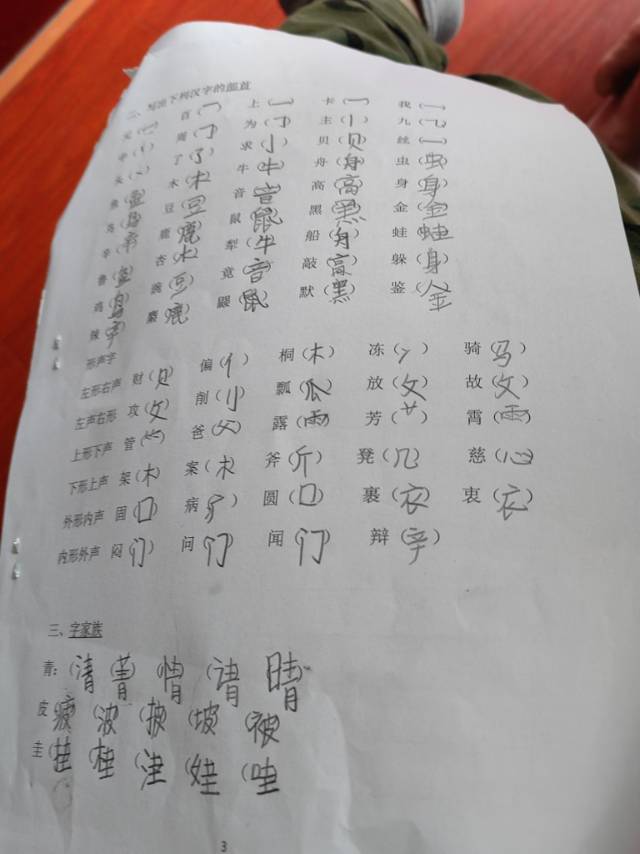 二、写出下列汉字的部首
元（一） 百（一） 上（一） 卡（一） 我（一）
中 周（冂） 为 主 九（乁）
头（丶） 了（了） 求（小） 贝（贝） 丝（一）
鱼（鱼） 木（木） 牛（牛） 舟（舟） 虫（虫）
鸟（鸟） 豆（豆） 音（音） 高（高） 身（身）
辛（辛） 鹿（鹿） 鼠（鼠） 黑（黑） 金（金）
鲁（鱼） 杏（木） 犁（牛） 船（舟） 蛙（蛙）
鸡（鸟） 豌（豆） 竟（音） 敲（高） 躲（身）
辣（辛） 麋（鹿） 鼹（鼠） 默（黑） 鉴（金）
形声字
左形右声 财（贝） 偏（亻） 桐（木） 冻（冫） 骑（马）
左声右形 攻（攵） 削（刂） 瓢（瓜） 放（攵） 故（攵）
上形下声 管（⺮） 爸（父） 露（雨） 芳（艹） 霄（雨）
下形上声 架（木） 案（木） 斧（斤） 凳（几） 慈（心）
外形内声 固（口） 病（疒） 圆（口） 裹（衣） 衷（衣）
内形外声 闷（门） 问（门） 闻（门） 辩（辛）
三、字家族
青：（清 （菁） （情） （请 （晴
皮 疲 （波 （披 （坡 （被
圭 （挂 （桂 （洼 （娃 （哇
3